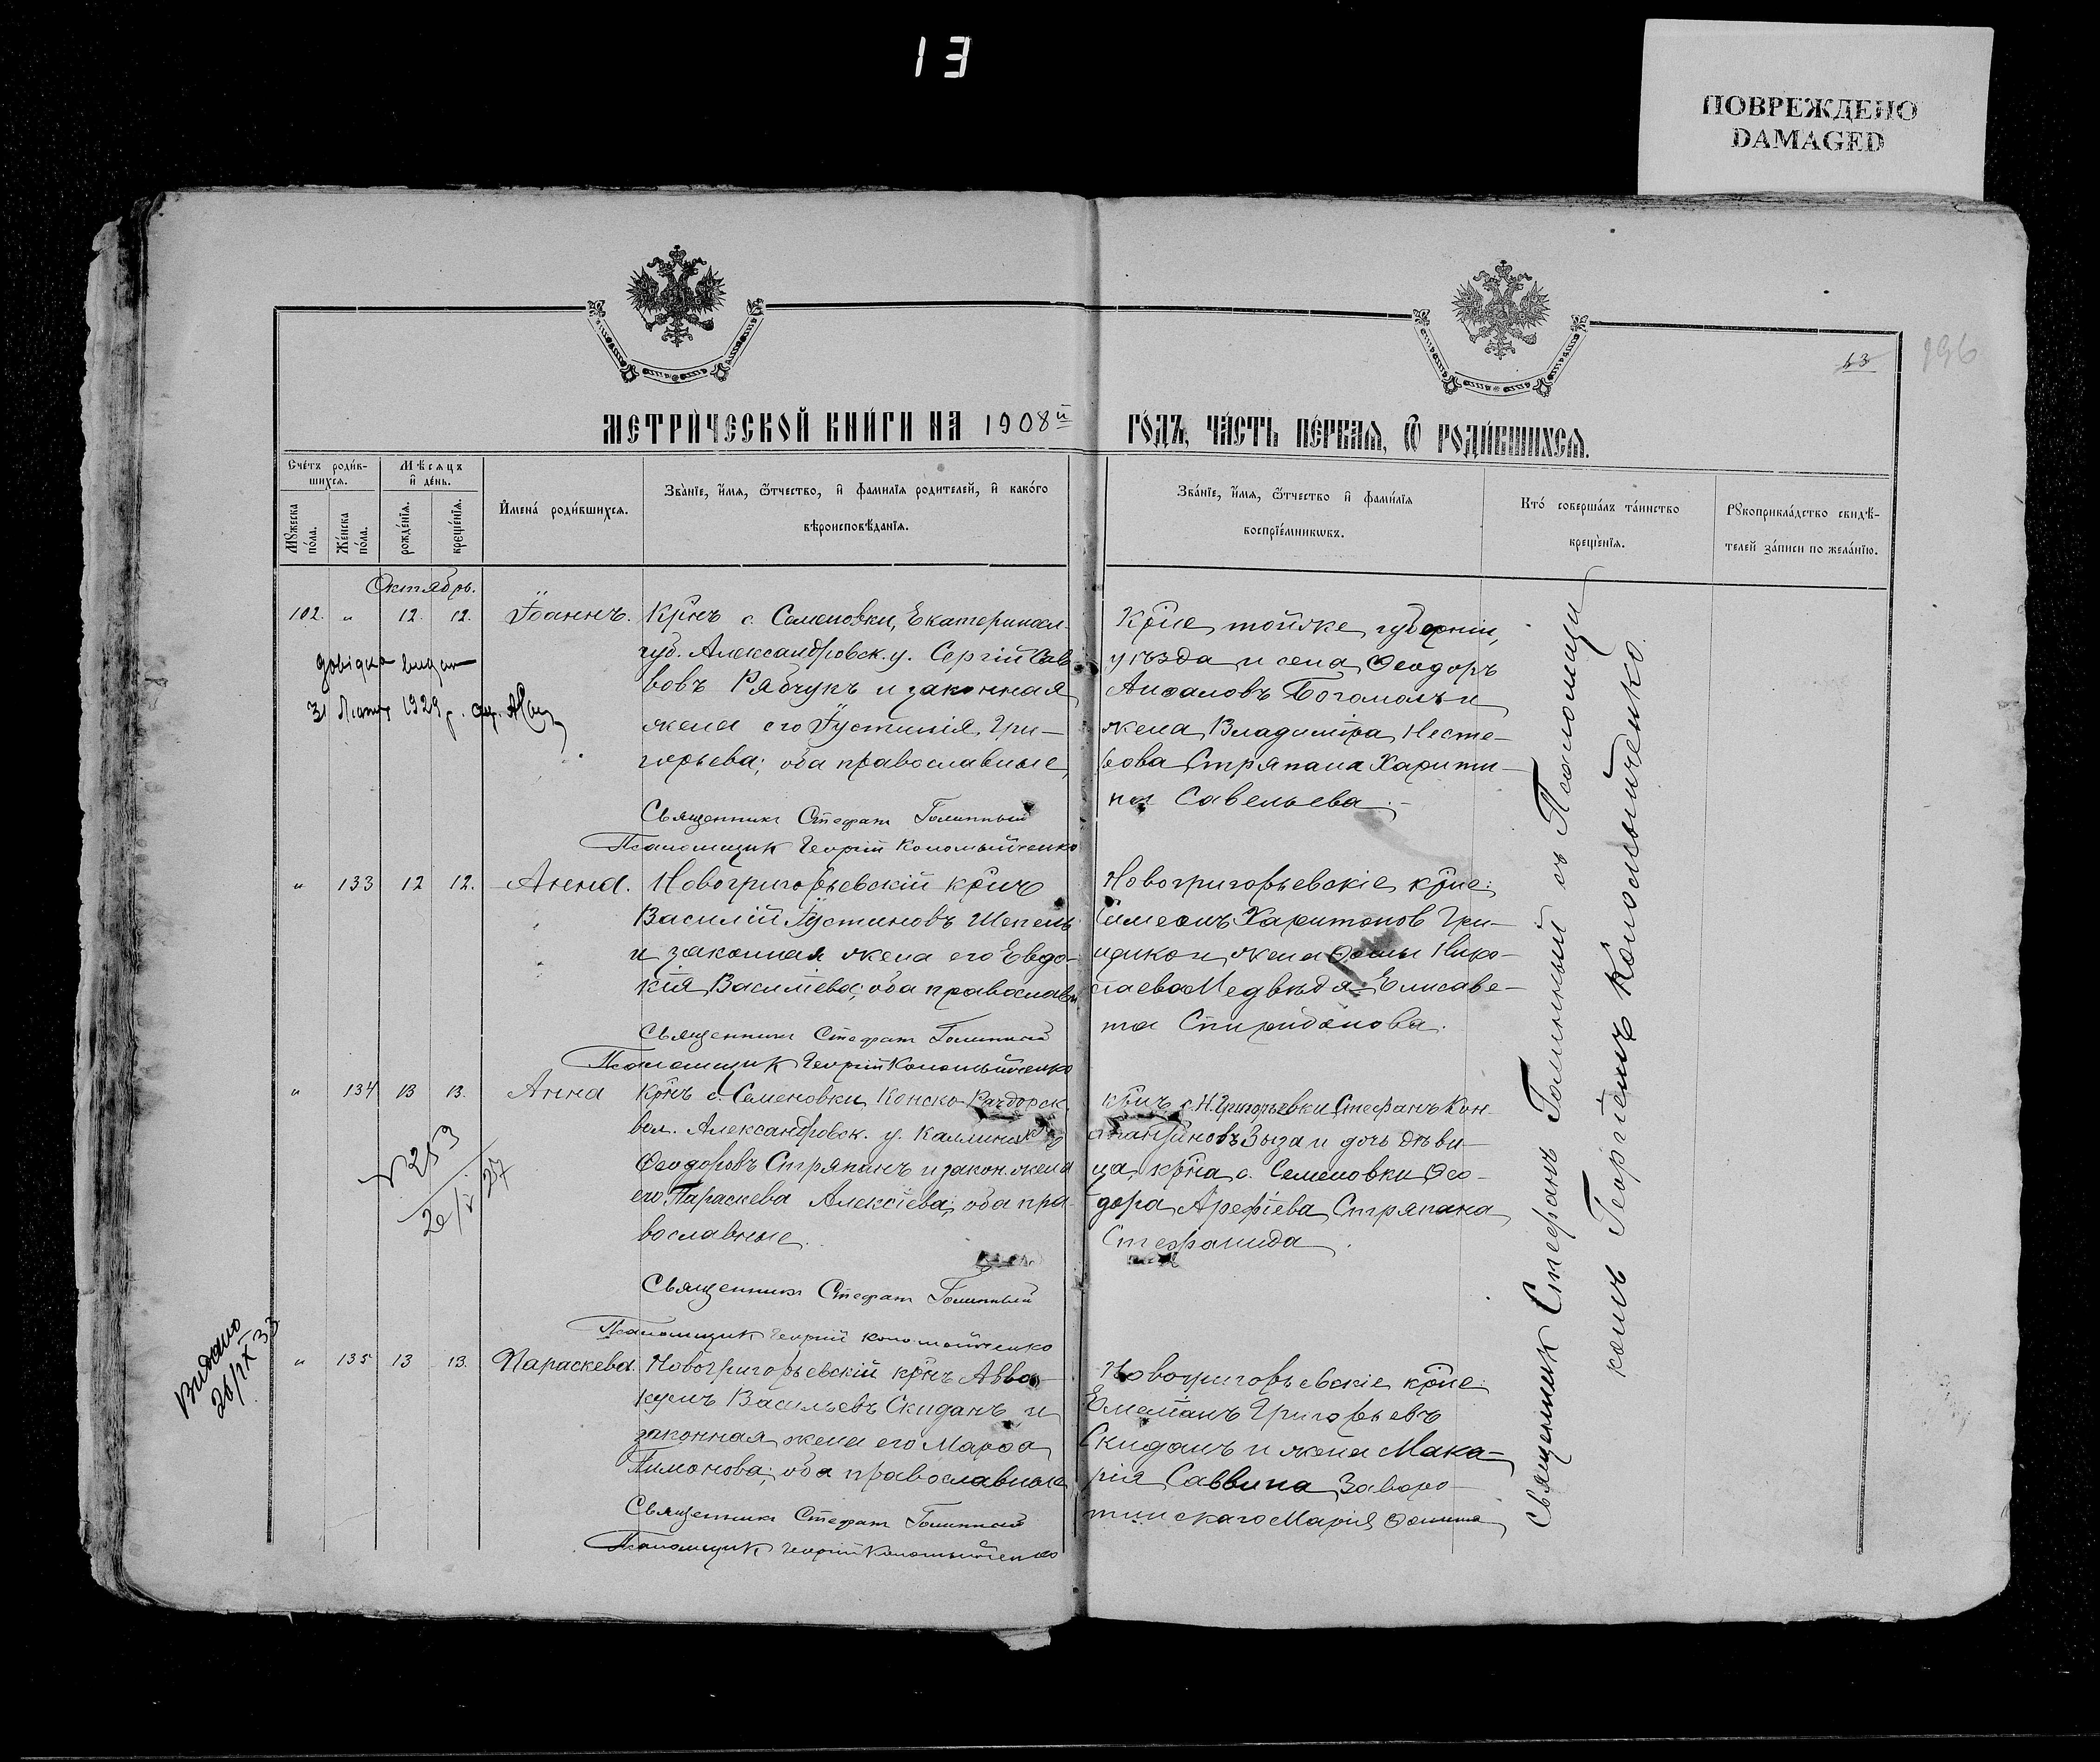 13
ПОВРЕЖДЕНО
DAMAGED
13
196
МЕТРИ́ЧЕСКОЙ КНИ́ГИ НА 1908й
ГО́ДЪ, ЧА́СТЬ ПЕ́РВАЯ, Ѡ РОДИ́ВШИХСЯ.
Сче́тъ роди́в-
шихся.
Мѣсяцъ
и де́нь.
Мꙋжеска по́ла.
Же́нска по́ла.
рожде́нїя.
креще́нїя.
Имена́ роди́вшихся.
Зва́нїе, и́мя, ѻ́тчество, и фами́лїя родителей, и како́го
вѣроисповѣ́данїя.
Зва́нїе, и́мя, ѻ́тчество и фами́лїя
воспрїе́мникѡвъ.
Кто́ соверша́лъ та́инство
креще́нїя.
Рꙋкоприкла́дство свидѣ́-
телей за́писи по жела́нїю.
Октябрь.
102. " 12. 12. Іоаннъ.
Кр͠нъ с. Семеновки, Екатеринсл.
губ. Александровск. у. Сергій Сав
вовъ Рябчукъ и законная
жена его Іустинія Гри-
горьева; оба православные
Священник Стефан Голинный
Псаломщик Георгій Коломыйченко
Кр͠не тойже губерніи,
уѣзда и села Ѳеодоръ
Богомолъ и
жена Владиміра Несте-
рова Стряпана Харити-
на Савельева.
довідка видан
31 1929 р.
" 133 12 12. Анна.
Новогригорьевскій кр͠нъ
Василій Іустиновъ Шепель
и законная жена его Евдо-
кія Василіева; оба православн
Священник Стефан Голинный
Псаломщик Георгій Коломыйченко
Новогригорьевскіе кр͠не:
Симеонъ Харитонов Гри-
цико и жена Ѳомы Нико-
лаева Медвѣдя Елисаве-
та Спиридонова.
" 134 13 13. Анна
Кр͠нъ с. Семеновки Конско-Раздорск.
вол. Александровск. у. Каллиникъ
Ѳеодоровъ Стряпанъ и закон. жена
его Параскева Алексіева; оба пра-
вославные.
Священник Стефан Голинный
Псаломщик Георгій Коломыйченко
кр͠нъ с. Н. Григорьевки Стефанъ Кон-
стантиновъ Зыза и дочь дѣви-
ца кр͠на с. Семеновки Ѳео-
дора Арефіева Стряпана
Стефанида.
N 253
Видано
26/IX 33
" 135 13 13. Параскева.
Новогригорьевскій кр͠нъ Авва-
кумъ Васильевъ Скиданъ и
законная жена его Марѳа
Тимонова; оба православные
Священник Стефан Голинный
Псаломщик Георгій Коломыйченко
Новогригорьевскіе кр͠не:
Емеліанъ Григорьевъ
Скиданъ и жена Мака-
рія Саввина Заворо-
тинскаго Марія Ѳомина
Священник Стефанъ Голинный съ Псаломщи
комъ Георгіемъ Коломыйченко.